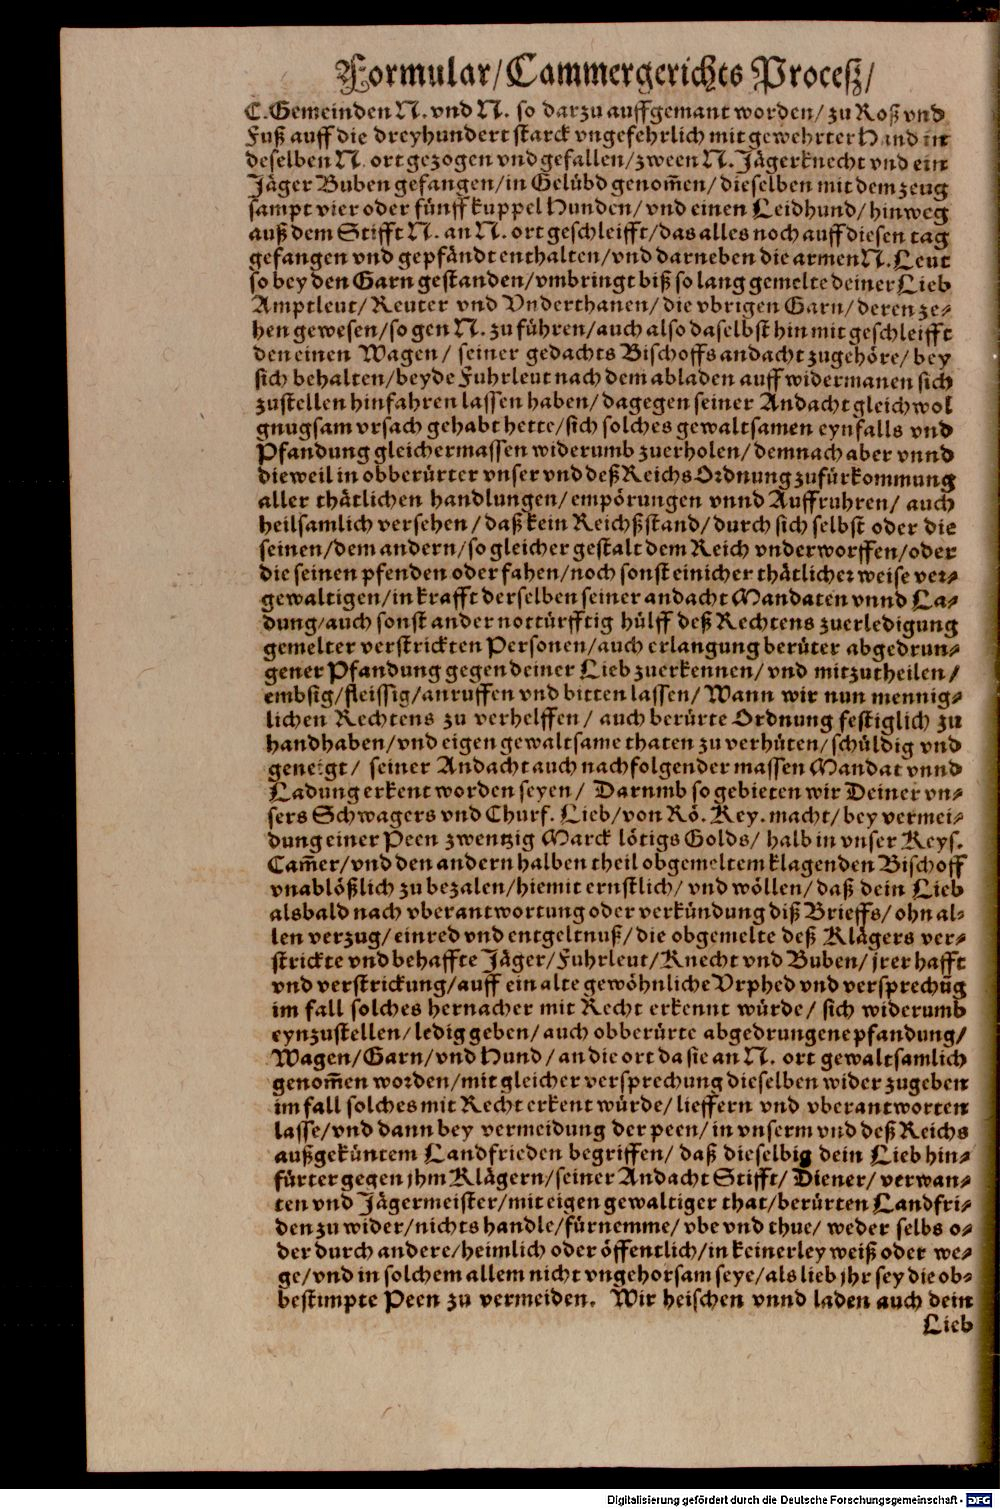 Formular/Cammergerichts Proceß/
C. Gemeinden N. vnd N. so darzu auffgemant worden/ zu Roß vnd
Fuß auff die dreyhundert starck vngefehrlich mit gewehrter Hand in
deselben N. ort gezogen vnd gefallen/ zween N. Jägerknecht vnd ein
Jäger Buben gefangen/ in Gelübd genom̃en/ dieselben mit dem zeug
sampt vier oder fünff kuppel Hunden/ vnd einen Leidhund/ hinweg
auß dem Stifft N. an N. ort geschleifft/ das alles noch auff diesen tag
gefangen vnd gepfändt enthalten/ vnd darneben die armen N. Leut
so bey den Garn gestanden/ vmbringt biß so lang gemelte deiner Lieb
Amptleut/ Reuter vnd Vnderthanen/ die vbrigen Garn/ deren ze-
hen gewesen/ so gen N. zu führen/ auch also daselbst hin mit geschleifft
den einen Wagen/ seiner gedachts Bischoffs andacht zugehöre/ bey
sich behalten/ beyde Fuhrleut nach dem abladen auff widermanen sich
zustellen hinfahren lassen haben/ dagegen seiner Andacht gleichwol
gnugsam vrsach gehabt hette/ sich solches gewaltsamen eynfalls vnd
Pfandung gleichermassen widerumb zuerholen/ demnach aber vnnd
dieweil in obberürter vnser vnd deß Reichs Ordnung zufürkommung
aller thätlichen handlungen/ empörungen vnnd Auffruhren/ auch
heilsamlich versehen/ daß kein Reichßstand/ durch sich selbst oder die
seinen/ dem andern/ so gleicher gestalt dem Reich vnderworffen/ oder
die seinen pfenden oder fahen/ noch sonst einicher thätlicher weise ver-
gewaltigen/ in krafft derselben seiner andacht Mandaten vnnd La-
dung/ auch sonst ander nottürfftig hülff deß Rechtens zuerledigung
gemelter verstrickten Personen/ auch erlangung berüter abgedrun-
gener Pfandung gegen deiner Lieb zuerkennen/ vnd mitzutheilen/
embsig/ fleissig/ anruffen vnd bitten lassen/ Wann wir nun mennig-
lichen Rechtens zu verhelffen/ auch berürte Ordnung festiglich zu
handhaben/ vnd eigen gewaltsame thaten zu verhüten/ schüldig vnd
geneigt/ seiner Andacht auch nachfolgender massen Mandat vnnd
Ladung erkent worden seyen/ Darumb so gebieten wir Deiner vn-
sers Schwagers vnd Churf. Lieb/ von Rö. Key. macht/ bey vermei-
dung einer Peen zwentzig Marck lötigs Golds/ halb in vnser Keys.
Cam̃er/ vnd den andern halben theil obgemeltem klagenden Bischoff
vnablößlich zu bezalen/ hiemit ernstlich/ vnd wöllen/ daß dein Lieb
alsbald nach vberantwortung oder verkündung diß Brieffs/ ohn al-
len verzug/ einred vnd entgeltnuß/ die obgemelte deß Klägers ver-
strickte vnd behaffte Jäger/ Fuhrleut/ Knecht vnd Buben/ jrer hafft
vnd verstrickung/ auff ein alte gewöhnliche Vrphed vnd versprechũg
im fall solches hernacher mit Recht erkennt würde/ sich widerumb
eynzustellen/ ledig geben/ auch obberürte abgedrungene pfandung/
Wagen/ Garn/ vnd Hund/ an die ort da sie an N. ort gewaltsamlich
genom̃en worden/ mit gleicher versprechung dieselben wider zugeben
im fall solches mit Recht erkent würde/ lieffern vnd vberantworten
lasse/ vnd dann bey vermeidung der peen/ in vnserm vnd deß Reichs
außgekün­tem Landfrieden begriffen/ daß dieselbig dein Lieb hin-
fürter gegen jhm Klägern/ seiner Andacht Stifft/ Diener/ verwan-
ten vnd Jägermeister/ mit eigen gewaltiger that/ berürten Landfri-
den zu wider/ nichts handle/ fürnemme/ vbe vnd thue/ weder selbs o-
der durch andere/ heimlich oder öffentlich/ in keinerley weiß oder we-
ge/ vnd in solchem allem nicht vngehorsam seye/ als lieb jhr sey die ob-
bestimpte Peen zu vermeiden. Wir heischen vnnd laden auch dein
Lieb
Digitalisierung gefördert durch die Deutsche Forschungsgemeinschaft - DFG